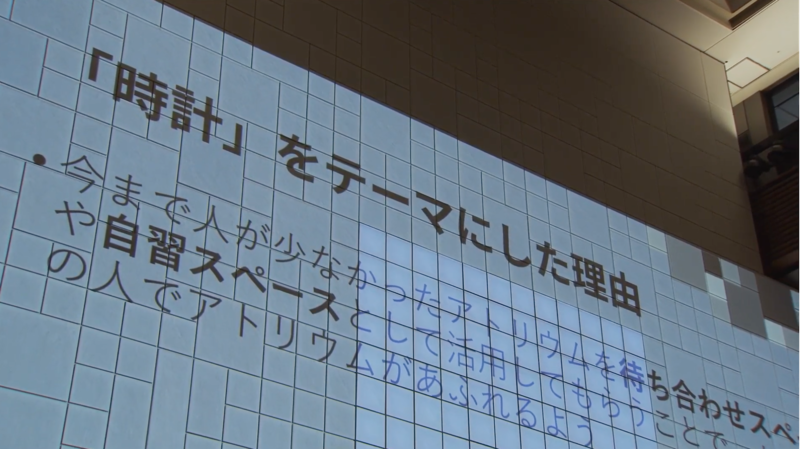 「時計」をテーマにした理由
• 今まで人が少なかったアトリウムを待ち合わせスペ
や自習スペースとして活用してもらうことで
の人でアトリウムがあふれるよう